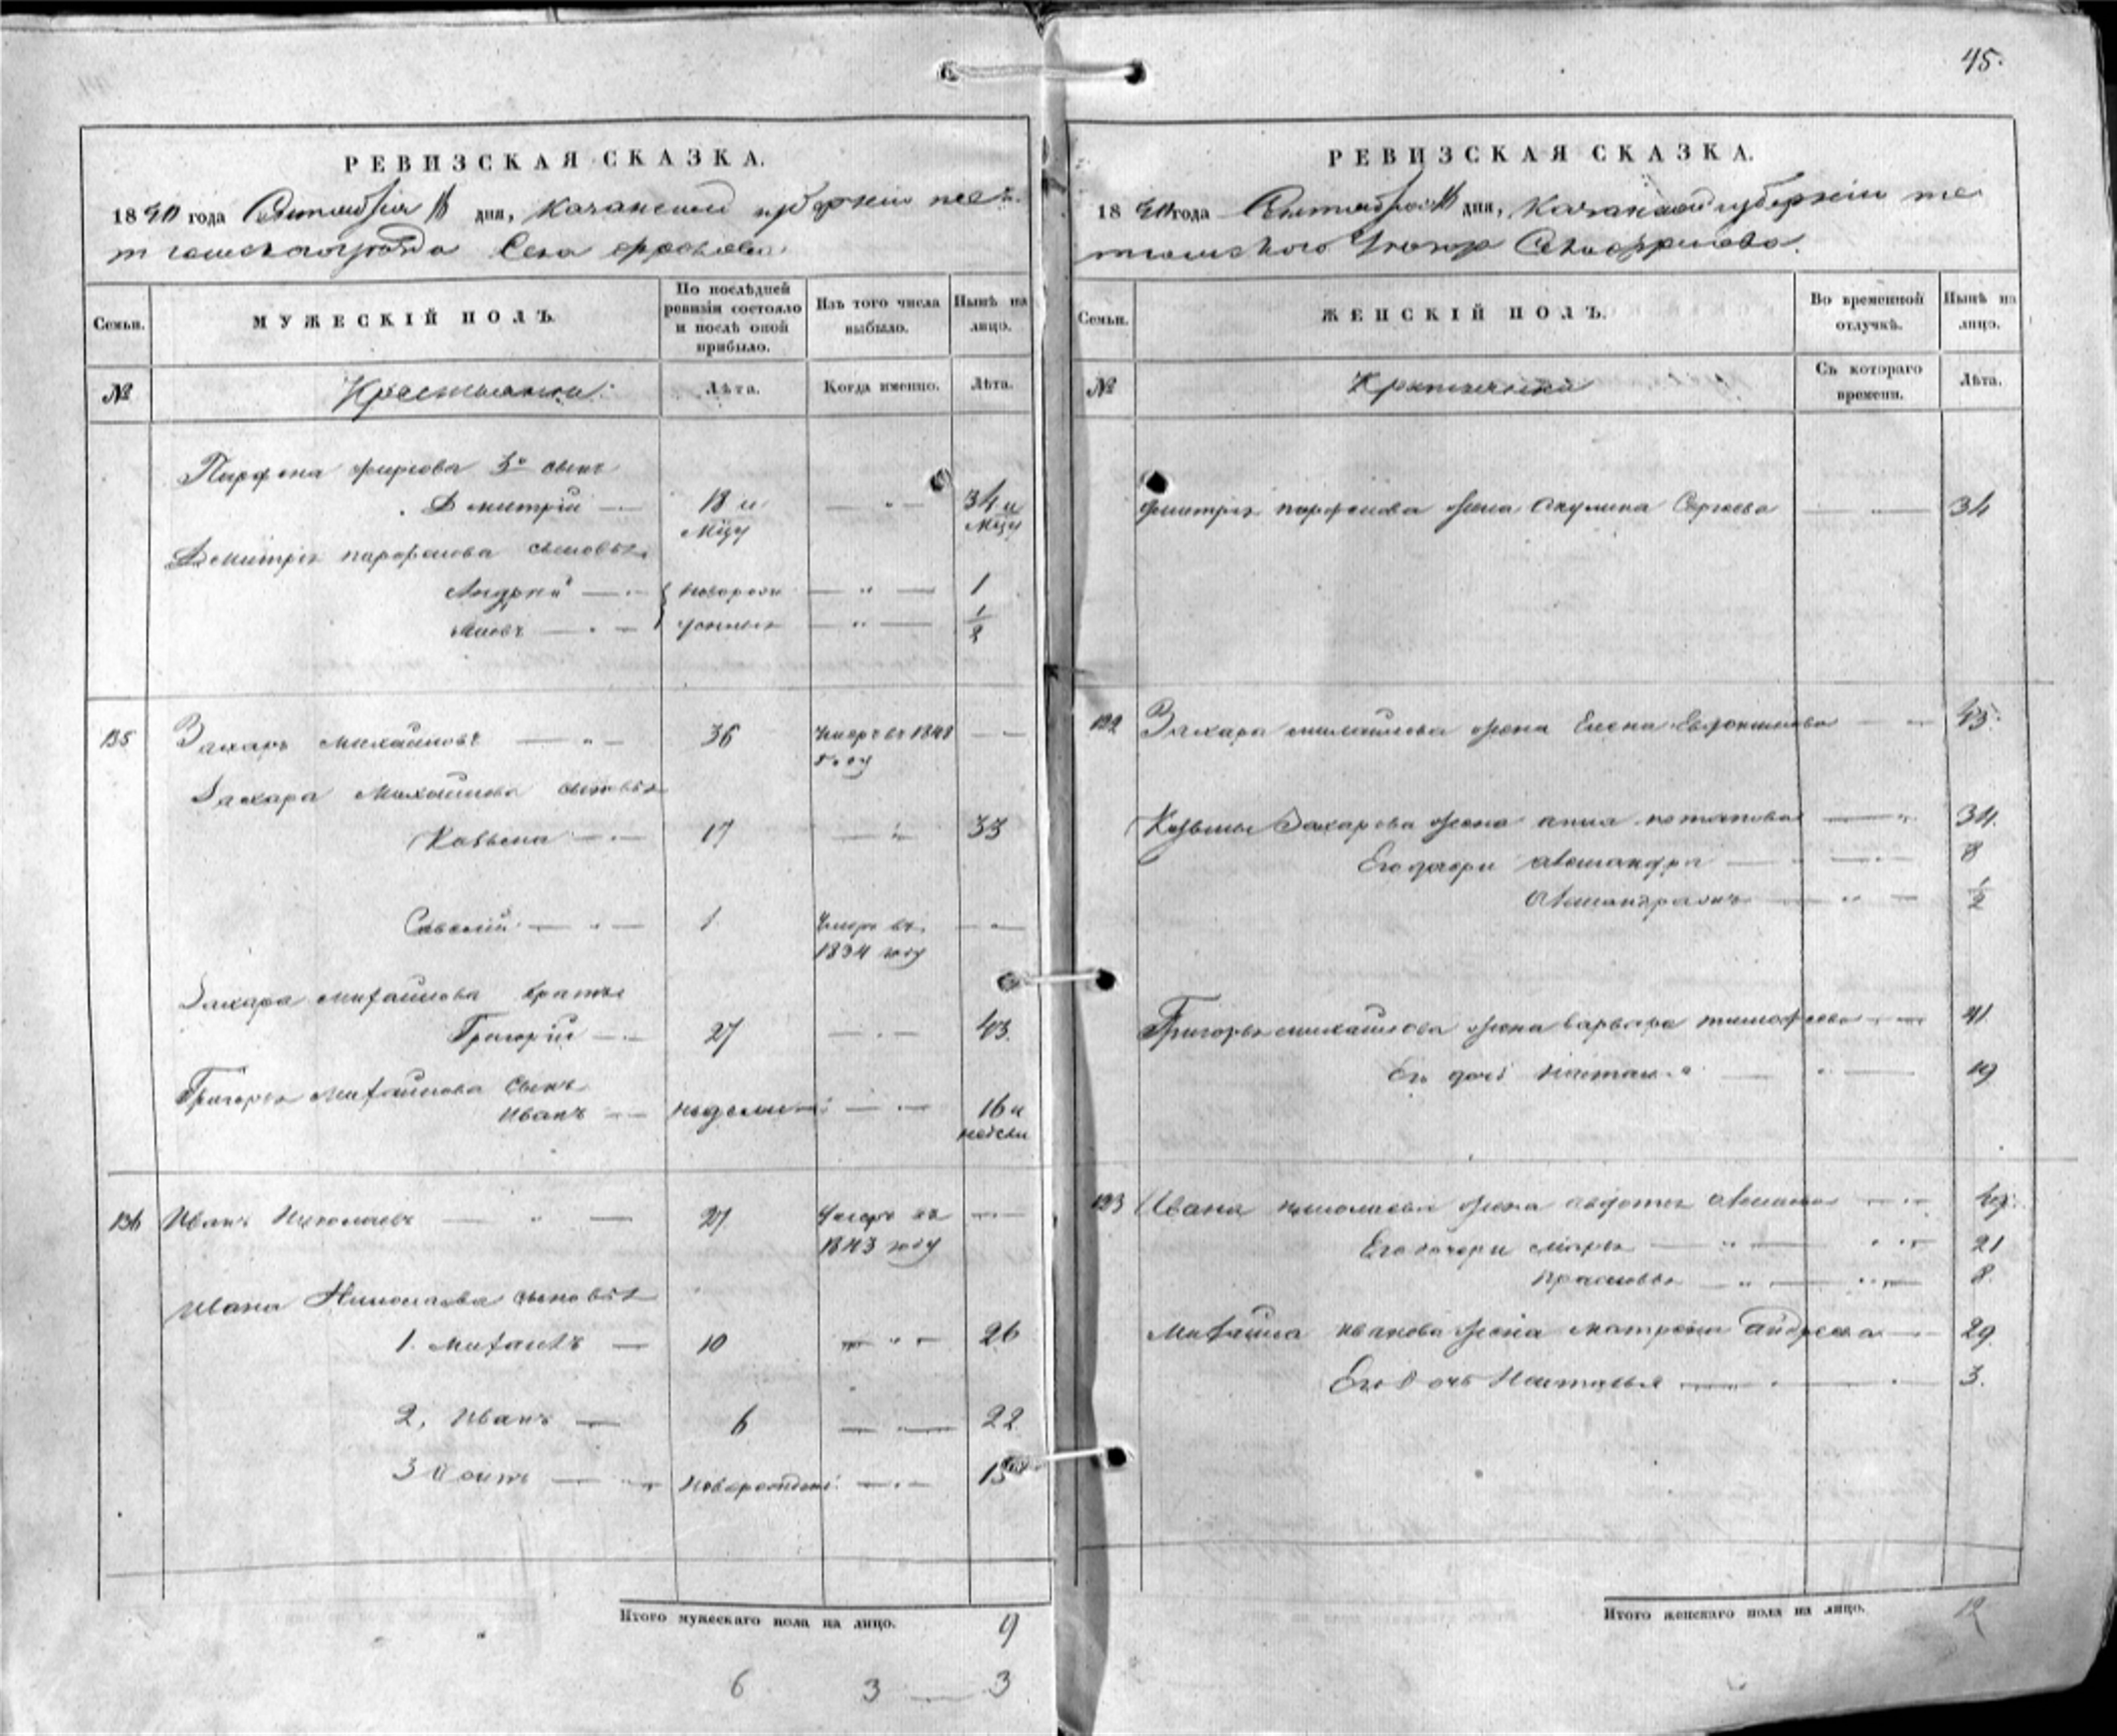 РЕВИЗСКАЯ СКАЗКА.
1850 года Сентября дня, Казанской губернiи
уѣзда Села
Семьи.
МУЖЕСКIЙ ПОЛЪ.
По послѣдней ревизiи состояло и послѣ оной прибыло.
Изъ того числа выбыло.
Нынѣ на лицо.
№
Крестьяне
Лѣта.
Когда именно.
Лѣта.
Парфена 3й сынъ
Дмитрiй 18 и 34 и
Дмитрiя Парфенова сыновья
Андрей новорож 1
денные 1/2
135 Захаръ Михайловъ 36 Умеръ въ 1848
году
Захара Михайлова сыновья
Козьма 17 33
Савелiй 1 Умеръ въ
1834 году
Захара Михайлова братъ
Григорiй 27 43
Григорья Михайлова сынъ
Иванъ недели 16 и
недели
136 Иванъ Николаевъ 27 Умеръ въ
1843 году
Ивана Николаева сыновья
1. Михаилъ 10 26
2, Иванъ 6 22
3 новорожден 15
Итого мужескаго пола на лицо. 9
6 3 3
45.
РЕВИЗСКАЯ СКАЗКА.
1850 года Сентября дня, Казанской губернiи те
тюшскаго Села
Семьи.
ЖЕНСКIЙ ПОЛЪ.
Во временной отлучкѣ.
Нынѣ на лицо.
№
Съ котораго времени.
Лѣта.
Дмитрiя Парфенова жена Акулина Сергеева 34
122 Захара Михайлова жена Елена Евдокимова 45.
Козьмы Захарова жена Анна Потапова 34.
Его дочери 8
1/2
Григорья Михайлова жена Варвара Тимофеева 41
Его дочь 19
123 Ивана Николаева жена Авдотья
Его дочери Марья 21
Прасковья 8.
Михаила Иванова жена Матрена Андреева 29
Его дочь Наталья 3.
Итого женскаго пола на лицо. 12